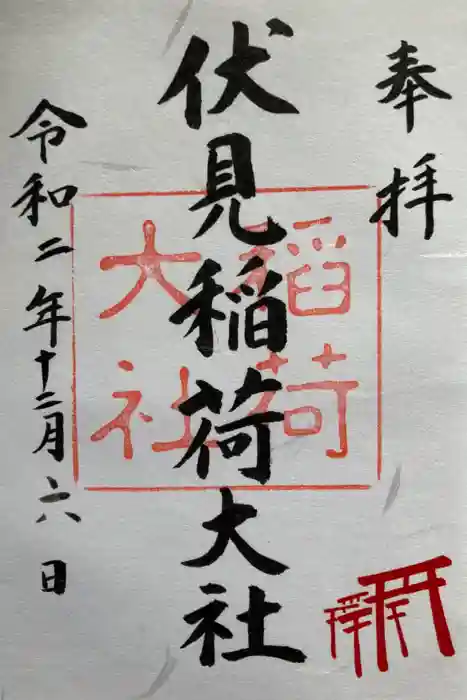 奉拝
伏見稲荷大社
稲荷
大社
令和二年十二月六日